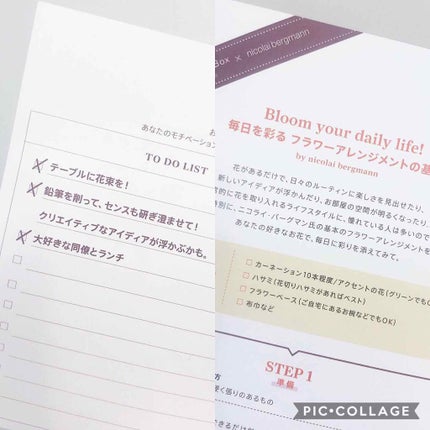 あなたのモチベーション
TO DO LIST
テーブルに花束を!
鉛筆を削って、センスも研ぎ澄ませて!
クリエイティブなアイディアが浮かぶかも。
大好きな同僚とランチ
Box × nicolai bergmann
Bloom your daily life!
毎日を彩る フラワーアレンジメントの基
by nicolai bergmann
花があるだけで、日々のルーティンに楽しさを見出せたり、
新しいアイディアが浮かんだり、お部屋の空間が明るくなったり
的に花を取り入れるライフスタイルに、憧れている人は多いので
特別に、ニコライ・バーグマン氏の基本のフラワーアレンジメントを
あなたの好きなお花で、毎日に彩りを添えてみて。
カーネーション10本程度/アクセントの花(グリーンでもO
ハサミ(花切りハサミがあればベスト)
フラワーベース(ご自宅にあるお椀などでもOK)
布巾など
STEP 1
準備
方
硬く張りのあるもの
PIC•COLLAGE